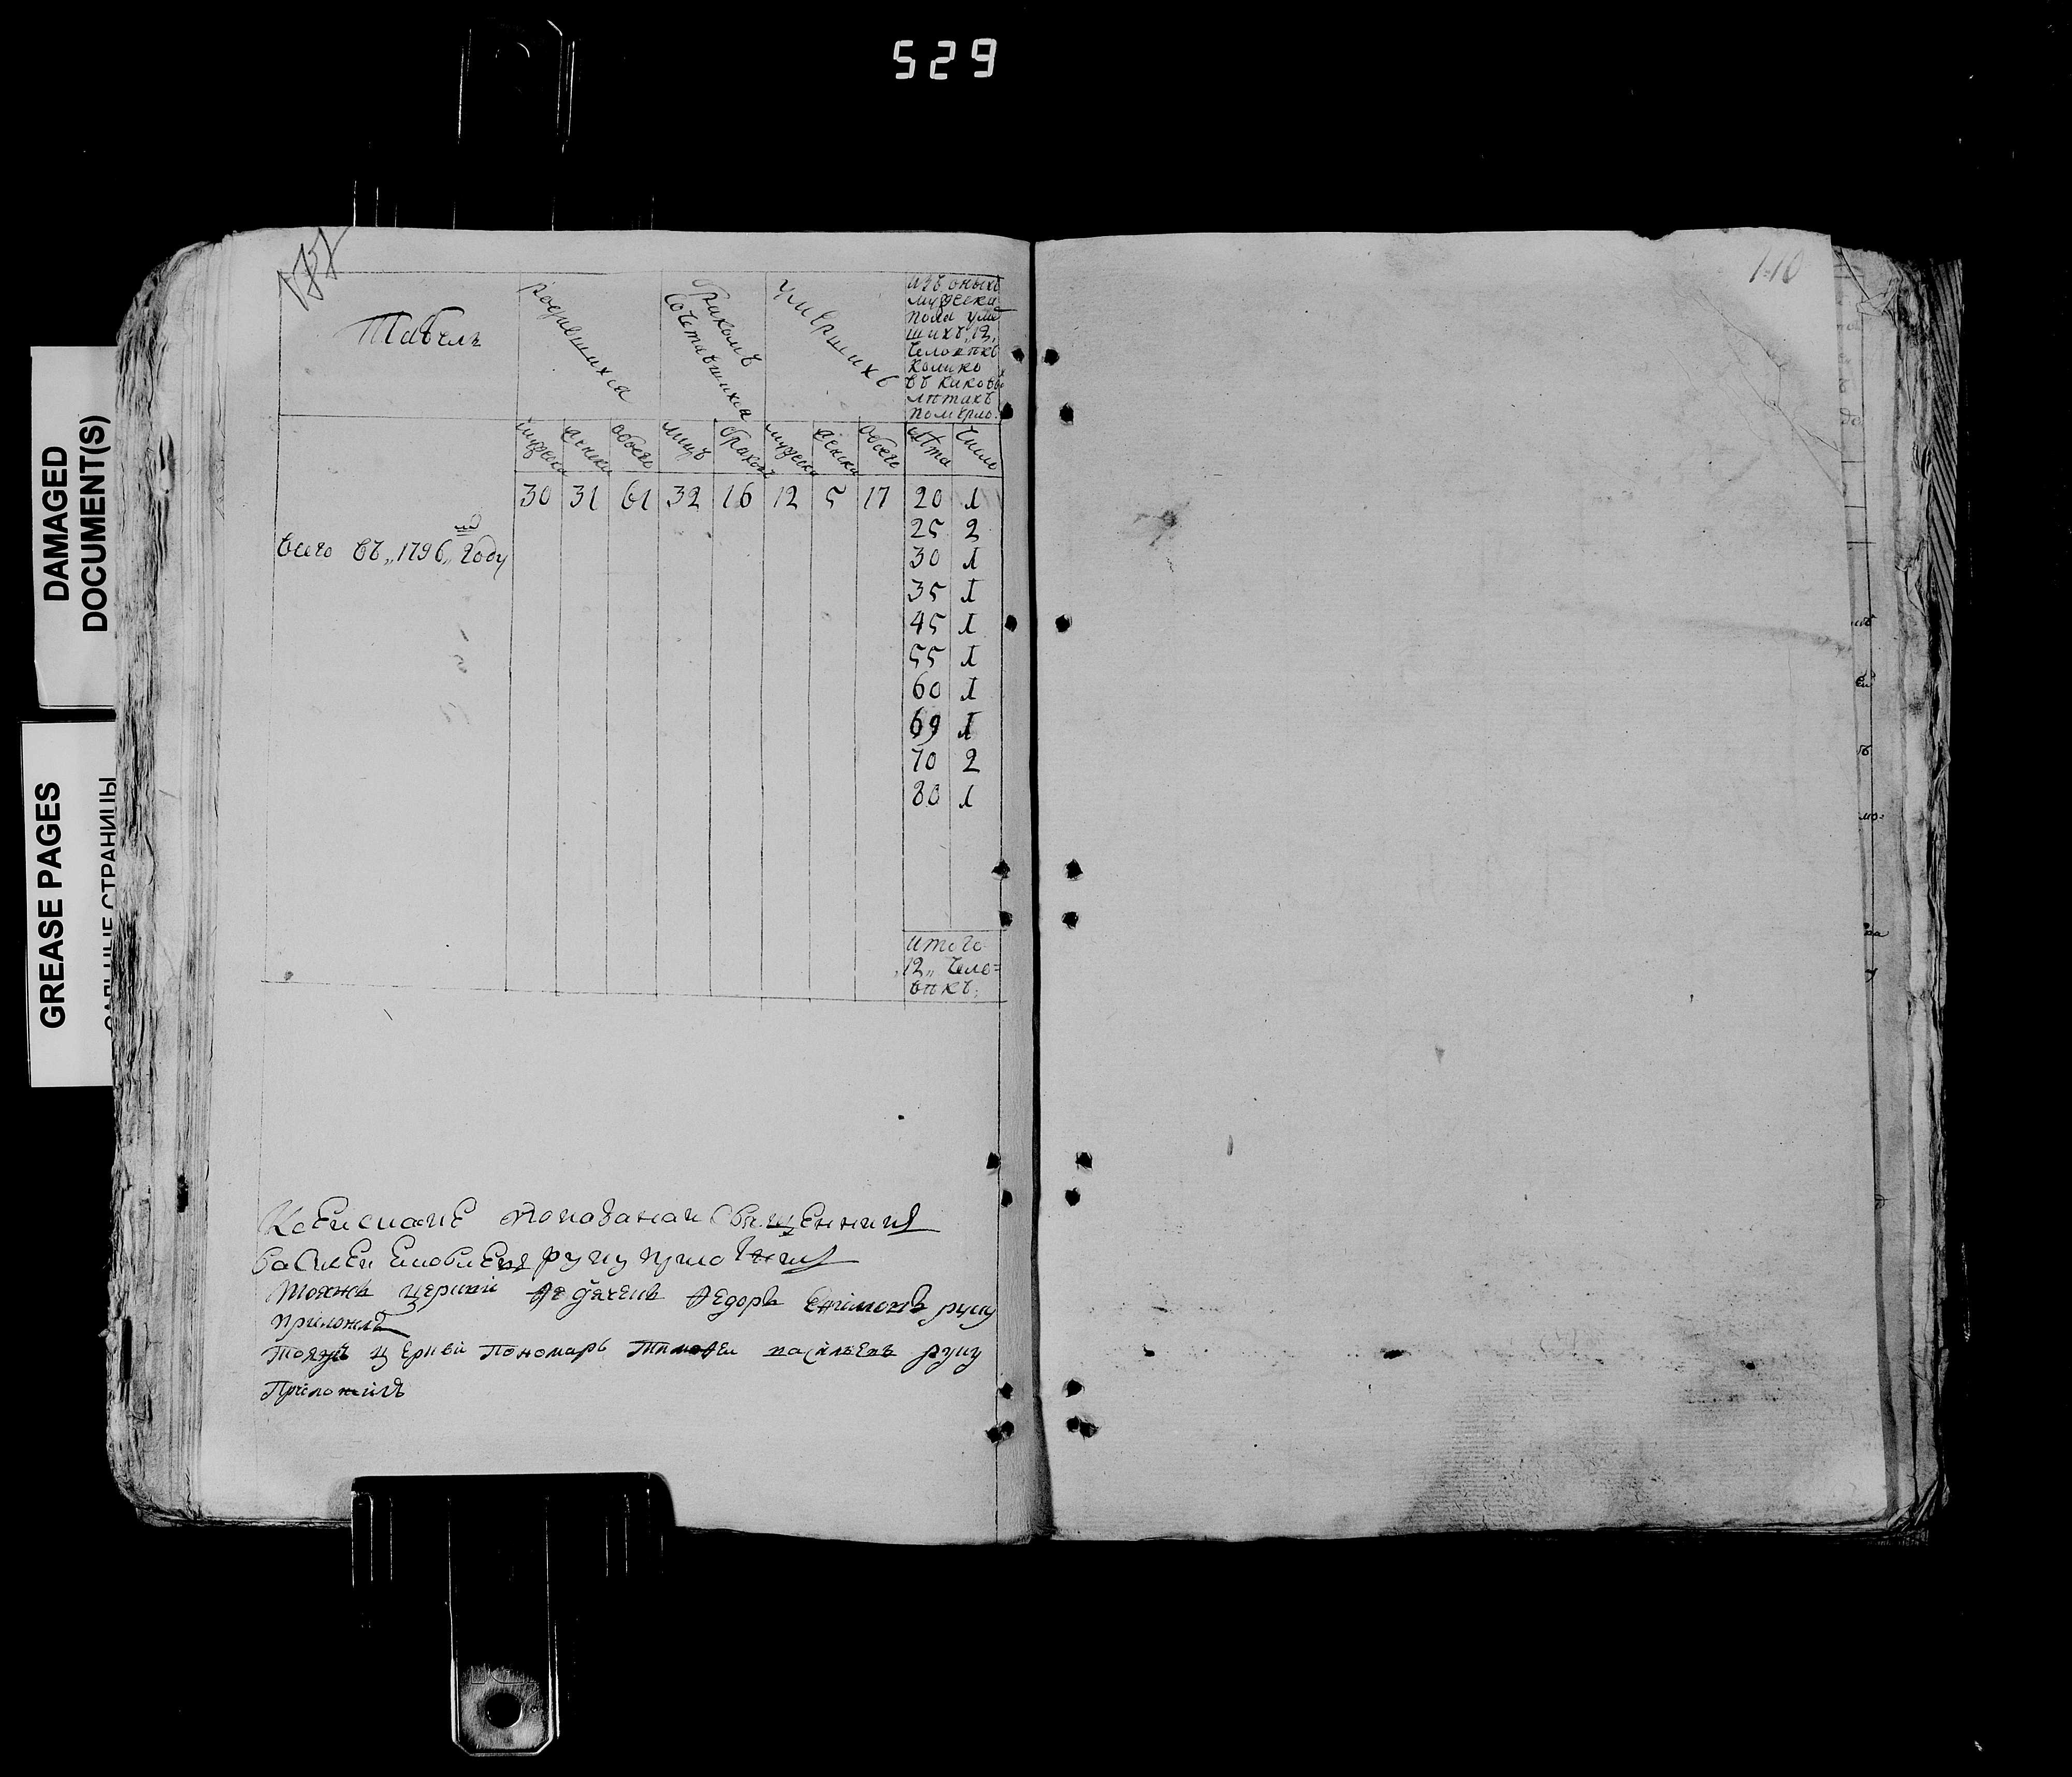 529
DAMAGED
DOCUMENT(S)
GREASE PAGES
САЛЬНЫЕ СТРАНИЦЫ
110
Табель
родившихся
бракомъ
сочетавшихся
умершихъ
изъ оныхъ
мужеска
пола умер
шихъ „12„
человѣкъ
колико
въ каковы
лѣтахъ
померло
мужеска
женска
обоего
лицъ
браковъ
мужеска
женска
обоего
лѣта
число
30 31 61 32 16 12 5 17 20 1
25 2
всего въ „1796„ мъ году
30 1
35 1
45 1
55 1
60 1
69 1
70 2
80 1
итого
„12„ чело=
вѣкъ.
священникъ
руку приложилъ
тояжъ церкви Федоръ руку
приложилъ
тояжъ церкви пономарь Тимофеи васильевъ руку
приложилъ